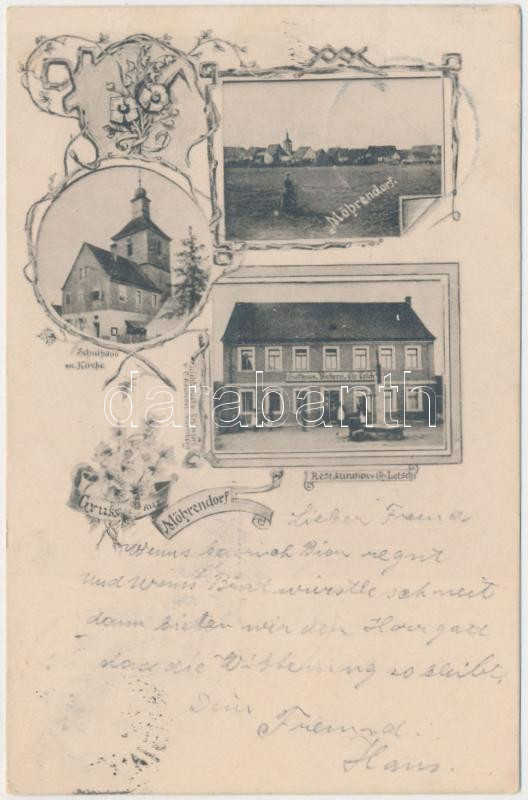 Möhrendorf.
Schulhaus
m. Kirche.
darabanth
Restauration v. G. Letsch
Gruss aus
Möhrendorf
Lieber Freund
Wenns bairisch Bier regnt
und wenns Bratwürstle schneit
dann bieten wir den Herrgatt
das die Witterung so bleibt,
Dein
Freund.
Hans.